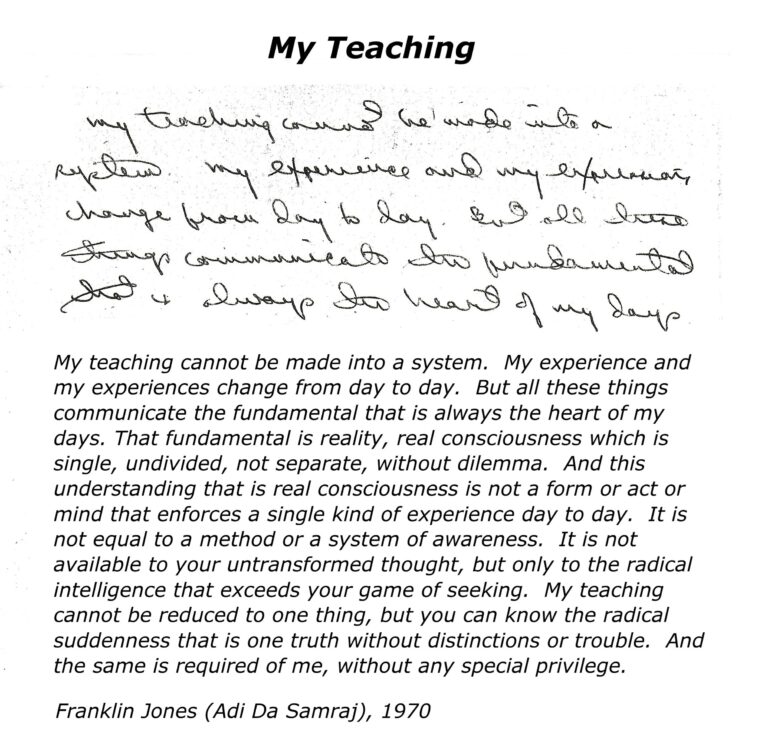 My Teaching
my teaching cannot be made into a
system. my experience and my
change from day to day. But all these
things communicate the fundamental
that is always the heart of my days
My teaching cannot be made into a system. My experience and
my experiences change from day to day. But all these things
communicate the fundamental that is always the heart of my
days. That fundamental is reality, real consciousness which is
single, undivided, not separate, without dilemma. And this
understanding that is real consciousness is not a form or act or
mind that enforces a single kind of experience day to day. It is
not equal to a method or a system of awareness. It is not
available to your untransformed thought, but only to the radical
intelligence that exceeds your game of seeking. My teaching
cannot be reduced to one thing, but you can know the radical
suddenness that is one truth without distinctions or trouble. And
the same is required of me, without any special privilege.
Franklin Jones (Adi Da Samraj), 1970